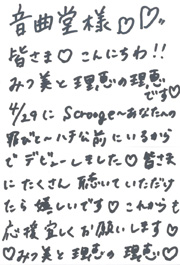 音曲堂様♡♡
皆さま♡こんにちわ!!
みつ美と理恵の理恵
です♡
4/29に Scrooge〜あなたへの
〜ハチ公前にいるから
でデビューしました♡皆さま
にたくさん聴いていただけ
たら嬉しいです♡これからも
応援宜しくお願いします♡
♡みつ美と理恵の 理恵♡